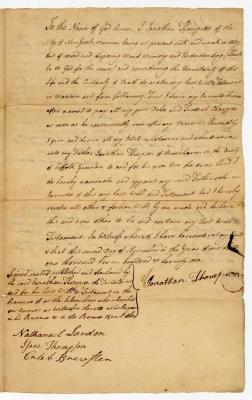 In the Name of God Amen, I Jonathan Thompson of the
City of New York Mariner being at present sick and weak in body
but of sound and disposing Mind Memory and Understanding, thanks
to God for the same, and considering the Uncertainty of this
Life and the Certainty of Death do make my last Will & Testament
in manner and form following, First I desire my Executor herein
after named to pay all my just Debts and Funeral Charges
as soon as he conveniently can after my decease
I give and devise all my Estate whatsoever and wheresoever
unto my Father Jonathan Thompson of Brookhaven in the County
of Suffolk to and for his own Use for ever
do hereby nominate and appoint my said Father sole
Executor of this my last Will and Testament and I hereby
revoke all other & former Wills by me made and declare
this and none other to be and contain my last Will &
Testament. In Witness whereof I have hereunto set my hand
& Seal this second Day of November in the Year of our Lord
one thousand seven hundred & seventy one
Signed, sealed, published and declared by
the said Jonathan Thompson the Testator as
and for his last Will & Testament in the
Presence of us the subscribers who subscribed
our names as witnesses hereto
in his Presence & in the Presence of each other
Jonathan Thompson
Nathanael Landon
Isaac Thompson
Caleb Brewster